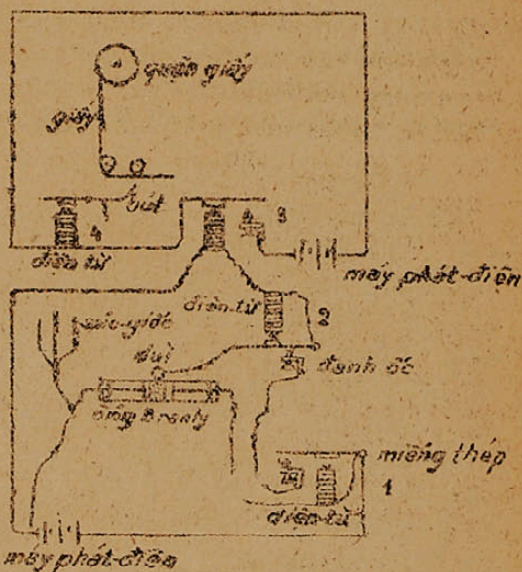 quận giấy
giấy
bút
4
3
điện từ
máy phát-điện
điện từ
2
dùi
đanh ốc
ống Branly
miếng thép
1
điện-từ
máy phát-điện